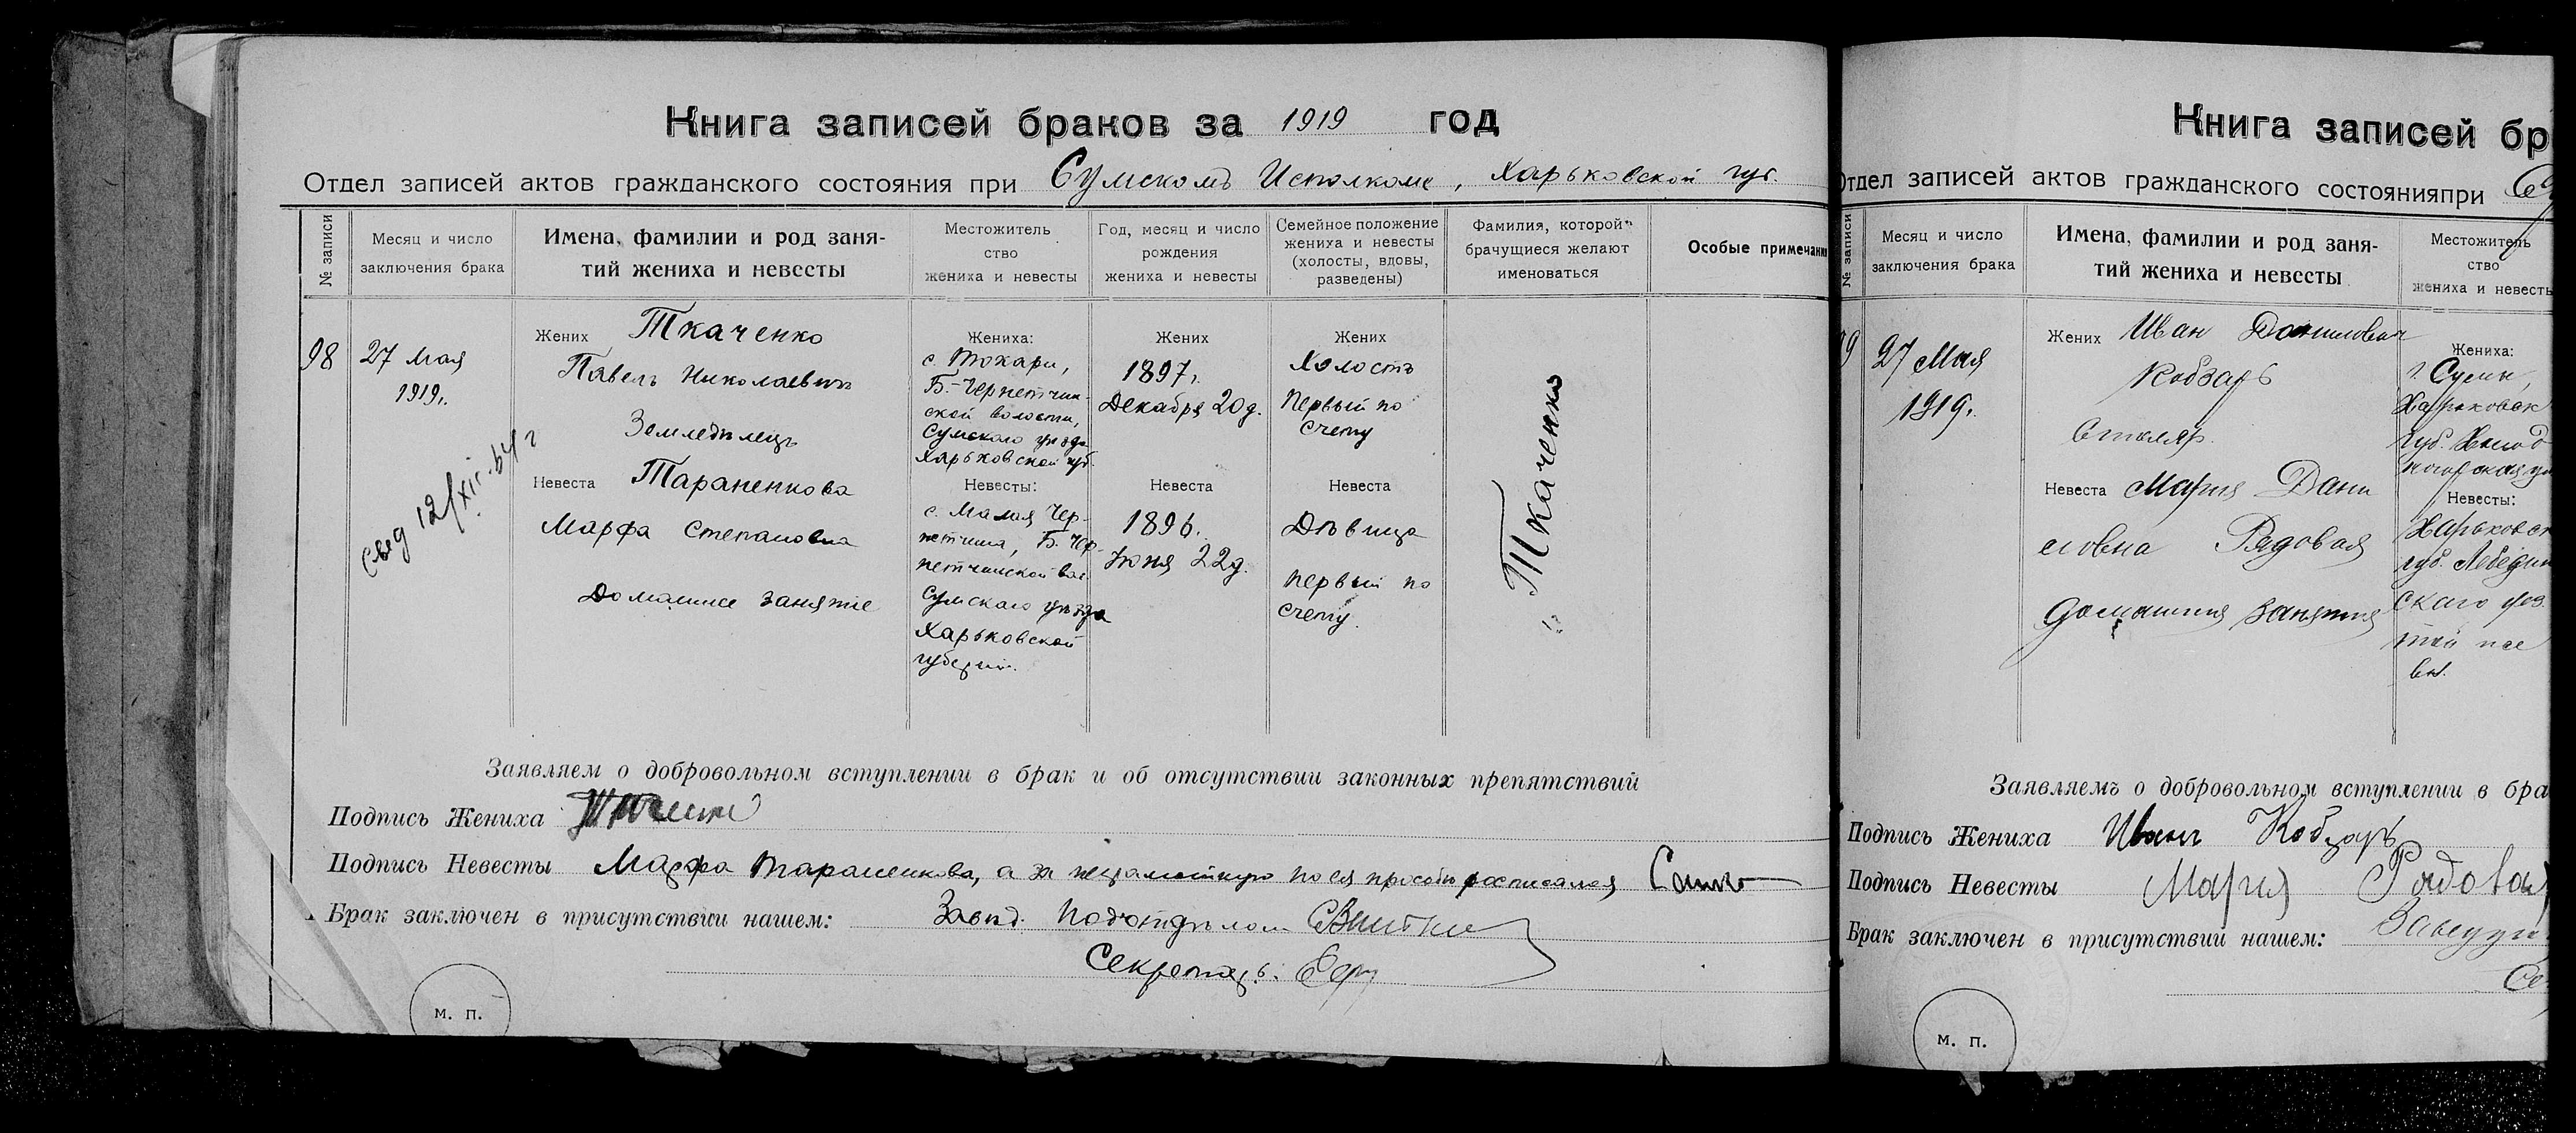 Книга записей браков за 1919 год
Отдел записей актов гражданского состояния при Сумскомъ Исполкоме, Харьковской губ.
№ записи
Месяц и число
заключения брака
Имена, фамилии и род заня-
тий жениха и невесты
Местожитель
ство
жениха и невесты
Год, месяц и число
рождения
жениха и невесты
Семейное положение
жениха и невесты
(холосты, вдовы,
разведены)
Фамилия, которой
брачущиеся желают
именоваться
Особые примечани
98
27 мая
1919г.
Свед 12/XII-64г
Жених Ткаченко
Павелъ Николаевичъ
Земледѣлецъ
Невеста Тараненкова
Марфа Степановна
Домашнее занятие
Жениха:
с. Токари,
Б.-Чернетчин-
ской волости,
Сумского уѣзда
Харьковской губ.
Невесты:
с. Малая Чер-
нетчина, Б. Чер-
нетчинской вол.
Сумскаго уѣзда
Харьковской
губерніи.
Жених
1897г.
Декабря 20д.
Невеста
1896г.
Июня 22д.
Жених
Холостъ
Первый по
счету
Невеста
Дѣвица
первый по
счету.
"Ткаченко"
Заявляем о добровольном вступлении в брак и об отсутствии законных препятствий
Подпись Жениха
Подпись Невесты Марфа Тараненкова, а за неграмотную по ея просьбе росписался
Брак заключен в присутствии нашем: Завѣд. Подотдѣлом
Секретарь.
м. п.
Книга записей бр
Отдел записей актов гражданского состоянияпри Су
№ записи
Месяц и число
заключения брака
Имена, фамилии и род заня-
тий жениха и невесты
Местожитель
ство
жениха и невесты
9
27 Мая
1919г.
Жених Иван Данилович
Кобзарь
Столяр.
Невеста Мария Дани
ловна Рядовая
домашния занятия
Жениха:
г. Сумы,
Харьковск
губ.
Невесты:
Харьковск
губ. Лебедин
скаго уез.
Заявляемъ о добровольном вступлении в бра
Подпись Жениха Иванъ Кобзарь
Подпись Невесты Мария Рядовая
Брак заключен в присутствии нашем: Заведую
Се
м. п.